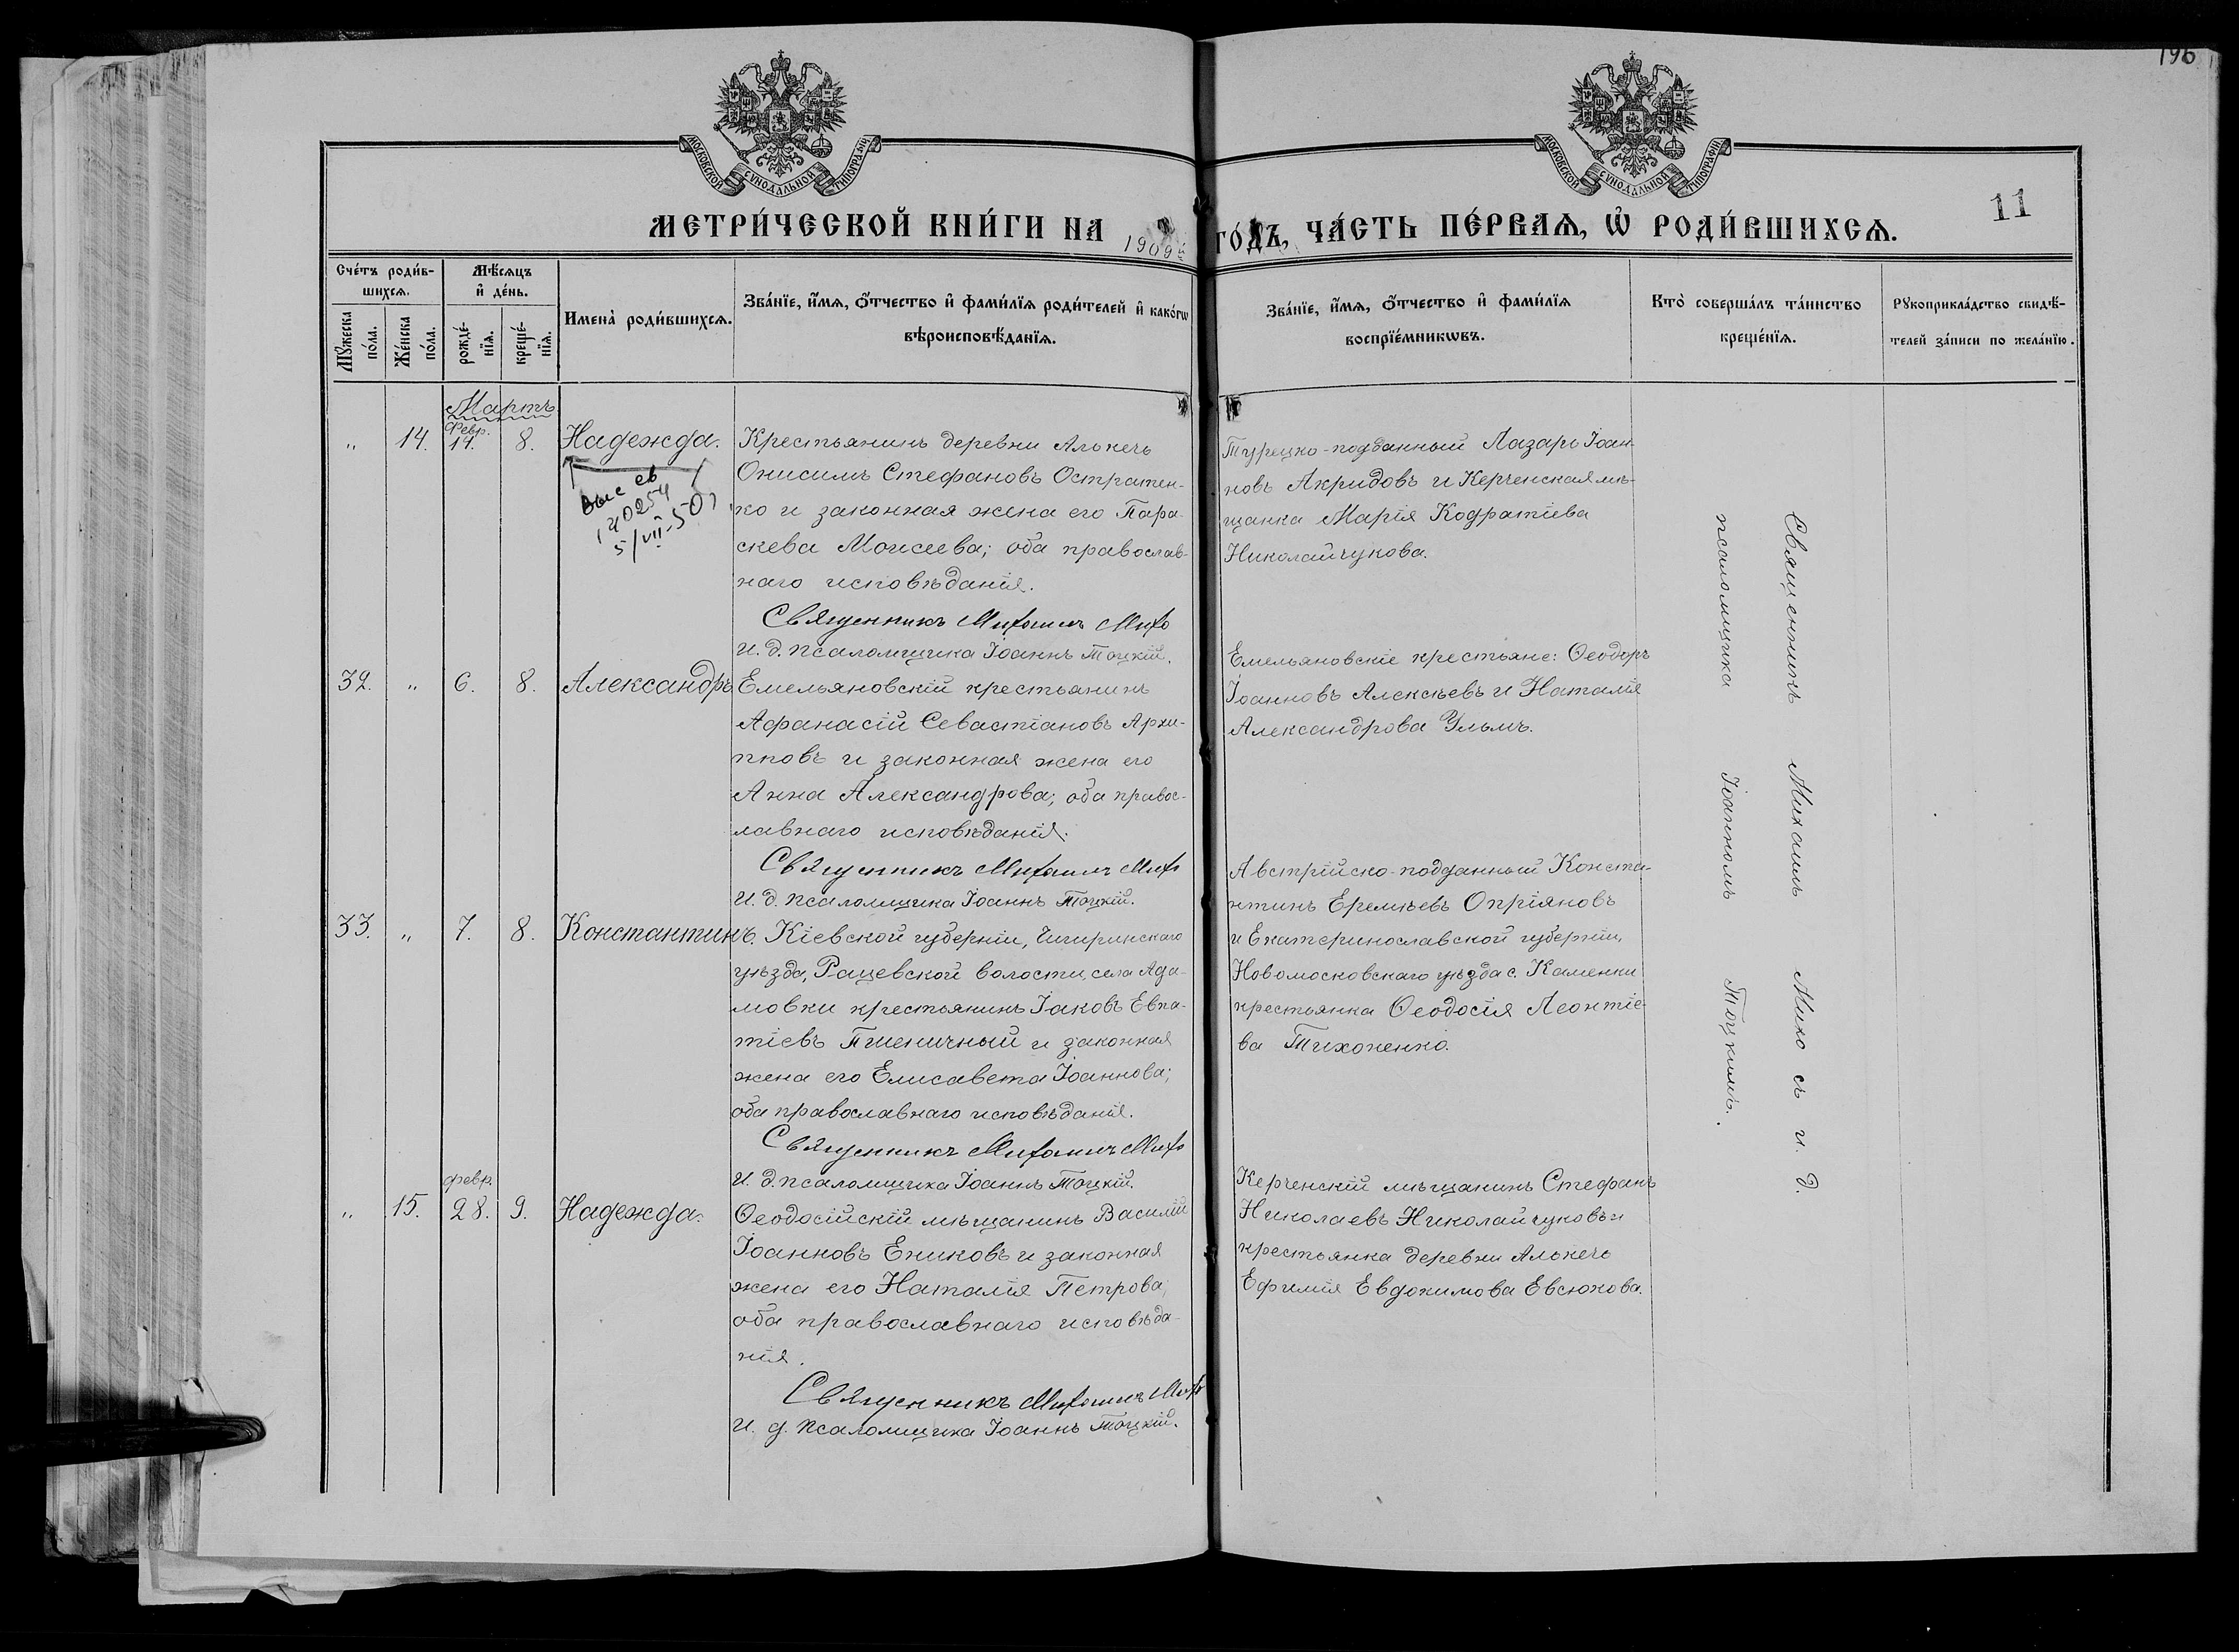 196
МОСКОВСКОЙ СѴНОДАЛЬНОЙ ТИПОГРАФІИ
МОСКОВСКОЙ СѴНОДАЛЬНОЙ ТИПОГРАФІИ
11
МЕТРИ́ЧЕСКОЙ КНИ́ГИ НА 1909 ГО́ДЪ, ЧА́СТЬ ПЕ́РВАѦ, Ѡ҆ РОДИ́ВШИХСѦ.
Сче́тъ роди́в-
шихсѧ.
Мꙋ́жеска по́ла.
Же́нска по́ла.
Мѣ́сѧцъ
и҆ де́нь.
рожде́-
нїѧ.
креще́-
нїѧ.
Имена̀ роди́вшихсѧ.
Зва́нїе, и҆́мѧ, ѻ҆́тчество и҆ фами́лїѧ роди́телей и҆ како́гѡ
вѣроисповѣ́данїѧ.
Зва́нїе, и҆́мѧ, ѻ҆́тчество и҆ фами́лїѧ
воспрїе́мникѡвъ.
Кто̀ соверша́лъ та́инство
креще́нїѧ.
Рꙋкоприкла́дство свидѣ́-
телей за́писи по жела́нїю.
Мартъ
„ 14. Февр. 14. 8. Надежда.
Крестьянинъ деревни Алькечь
Онисимъ Стефановъ Остратен-
ко и законная жена его Пара-
скева Моисеева; оба православ-
наго исповѣданія.
Священникъ Михаилъ Михо
И. д. псаломщика Іоаннъ Тоцкій.
Турецко-подданный Лазарь Іоан-
новъ Акридовъ и Керченская мѣ-
щанка Марія Кодратіева
Николайчукова.
5/VII-50
32. „ 6. 8. Александръ
Емельяновскій крестьянинъ
Афанасій Севастіановъ Архи-
повъ и законная жена его
Анна Александрова; оба правос-
лавнаго исповѣданія.
Священникъ Михаилъ Михо
И. д. псаломщика Іоаннъ Тоцкій.
Емельяновскіе крестьяне: Ѳеодоръ
Іоанновъ Алексѣевъ и Наталія
Александрова Ульмъ.
33. „ 7. 8. Константинъ.
Кіевской губерніи, Чигиринскаго
уѣзда, Рацевской волости, села Ада-
мовки крестьянинъ Іаковъ Евпа-
тіевъ Пшеничный и законная
жена его Елисавета Іоаннова;
оба православнаго исповѣданія.
Священникъ Михаилъ Михо
И. д. псаломщика Іоаннъ Тоцкій.
Австрійско-подданный Конста-
нтинъ Еремѣевъ Опріяновъ
и Екатеринославской губерніи,
Новомосковскаго уѣзда с. Каменки
крестьянка Ѳеодосія Леонтіе-
ва Тихоненко.
„ 15. февр. 28. 9. Надежда.
Ѳеодосійскій мѣщанинъ Василій
Іоанновъ Ениковъ и законная
жена его Наталія Петрова;
оба православнаго исповѣда-
нія.
Священникъ Михаилъ Михо
И. д. псаломщика Іоаннъ Тоцкій.
Керченскій мѣщанинъ Стефанъ
Николаевъ Николайчуковъ и
крестьянка деревни Алькечь
Ефимія Евдокимова Евсюкова.
Священникъ Михаилъ Михо съ и. д.
псаломщика Іоанномъ Тоцкимъ.